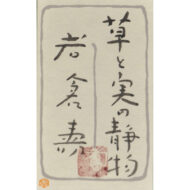 草と実の静物
岩倉壽